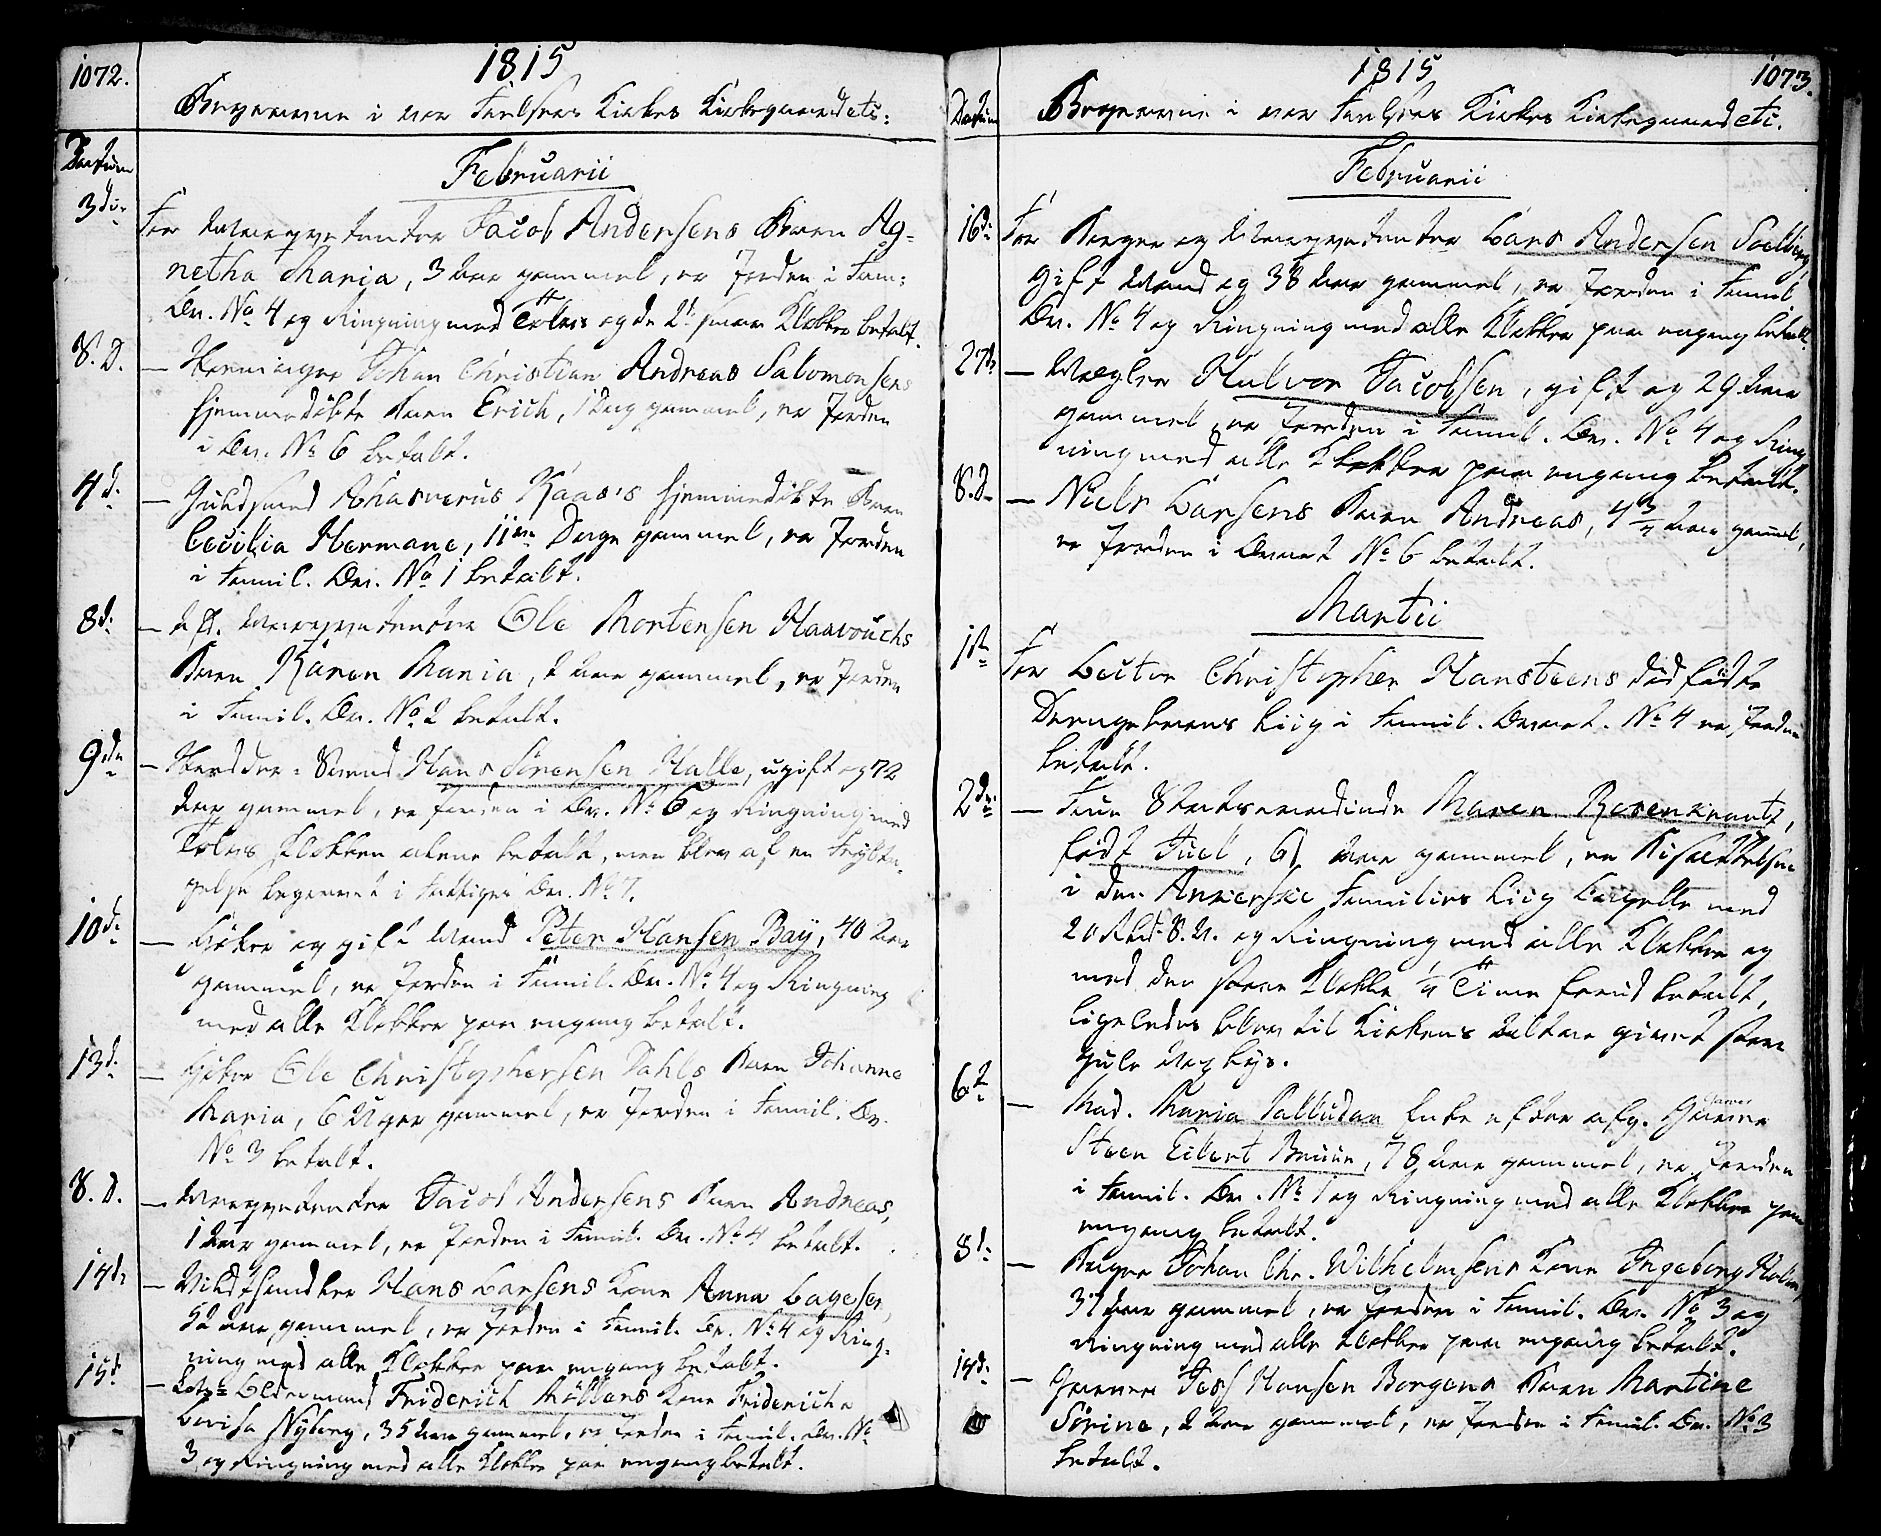 1072.
1815
Begravne i vor Frelsers Kirkes Kirkegaard etc:
Datum
Februarii
3die For Jacob Andersens Barn Ag-
netha Maria, 3 Aar gammel, er Jorden i Fam:
Qv. No 4 og Ringning med Tolvs og de 2de smaa Klokker betalt.
S. D. — Johan Christian Andreas Salomonsens
hjemmedöbte Barn Erich, 1 Dag gammel, er Jorden
i Qv. No 6 betalt.
4d: — Guldsmed Ahasverus Kaas's hjemmedöbte Barn
Cecilia Hermane, 11 Dage gammel, er Jorden
i Famil. Qv. No 1 betalt.
8d: — Ole Mortensen Haavouchs
Barn Karen Maria, 2 Aar gammel, er Jorden
i Famil. Qv. No 2 betalt.
9de — Hans Sörensen Halle, ugift og 72
Aar gammel, er Jorden i Qv. No 6 og Ringning med
Tolvs Klokken alene betalt, men blev af en
begravet i Fattiges Qv. No 7.
10d: — Höker og gift Mand Peter Hansen Bay, 40 Aar
gammel, er Jorden i Famil. Qv. No 4 og Ringning
med alle Klokker paa engang betalt.
13d: — Höker Ole Christophersen Dahls Barn Johanne
Maria, 6 Uger gammel, er Jorden i Famil. Qv.
No 3 betalt.
S. D. — Jacob Andersens Barn Andreas,
1 Aar gammel, er Jorden i Famil. Qv. No 4 betalt.
14de — Hans Larsens Kone Anna Lagesen,
52 Aar gammel, er Jorden i Famil. Qv. No 4 og Ring-
ning med alle Klokker paa engang betalt.
15d — Oldermand Friderich Möllers Kone Fridericha
Lovisa Nyborg, 35 Aar gammel, er Jorden i Famil. Qv. No
3 og Ringning med alle Klokker paa engang betalt.
1815
1073.
Datum
Begravne i vor Frelsers Kirkes Kirkegaard etc.
Februarii
16d: For Borger og Lars Andersen Soelberg,
gift Mand og 38 Aar gammel, er Jorden i Famil
Qv. No 4 og Ringning med alle Klokker paa engang betalt.
27de — Mægler Halvor Jacobsen, gift og 29 Aar
gammel, er Jorden i Famil. Qv. No 4 og Ring
ning med alle Klokker paa engang betalt.
S. D. — Niels Larsens Barn Andreas, 4 3/4 Aar gammel,
er Jorden i Qvart No 6 betalt.
Martii
1ste For Lector Christopher Hansteens dödfödte
Drengebarns Liig i Famil. Qvart. No 4 er Jorden
betalt.
2den — Frue Maren Rosenkrantz,
födt Juel, 61 Aar gammel, er Bisættelsen
i den Ankerske Families Liig Capelle med
20 Rbd. S. V. og Ringning med alle Klokker og
med den store Klokke 1/4 Time forud betalt,
ligeledes blev til Kirkens Altare givet store
gule Voxlys.
6te — Mad. Maria Palludan Enke efter afg. Garver
Garver
Steen Eilert Bruun, 78 Aar gammel, er Jorden
i Famil. Qv. No 1 og Ringning med alle Klokker paa
engang betalt.
8d: — Bager Johan Chr. Wilhelmsens Kone Ingeborg Holm,
37 Aar gammel, er Jorden i Famil. Qv. No 3 og
Ringning med alle Klokker paa engang betalt.
14d: — Garver Jess Hansen Borgens Barn Martine
Sörine, 2 Aar gammel, er Jorden i Famil. Qv. No 3
betalt.